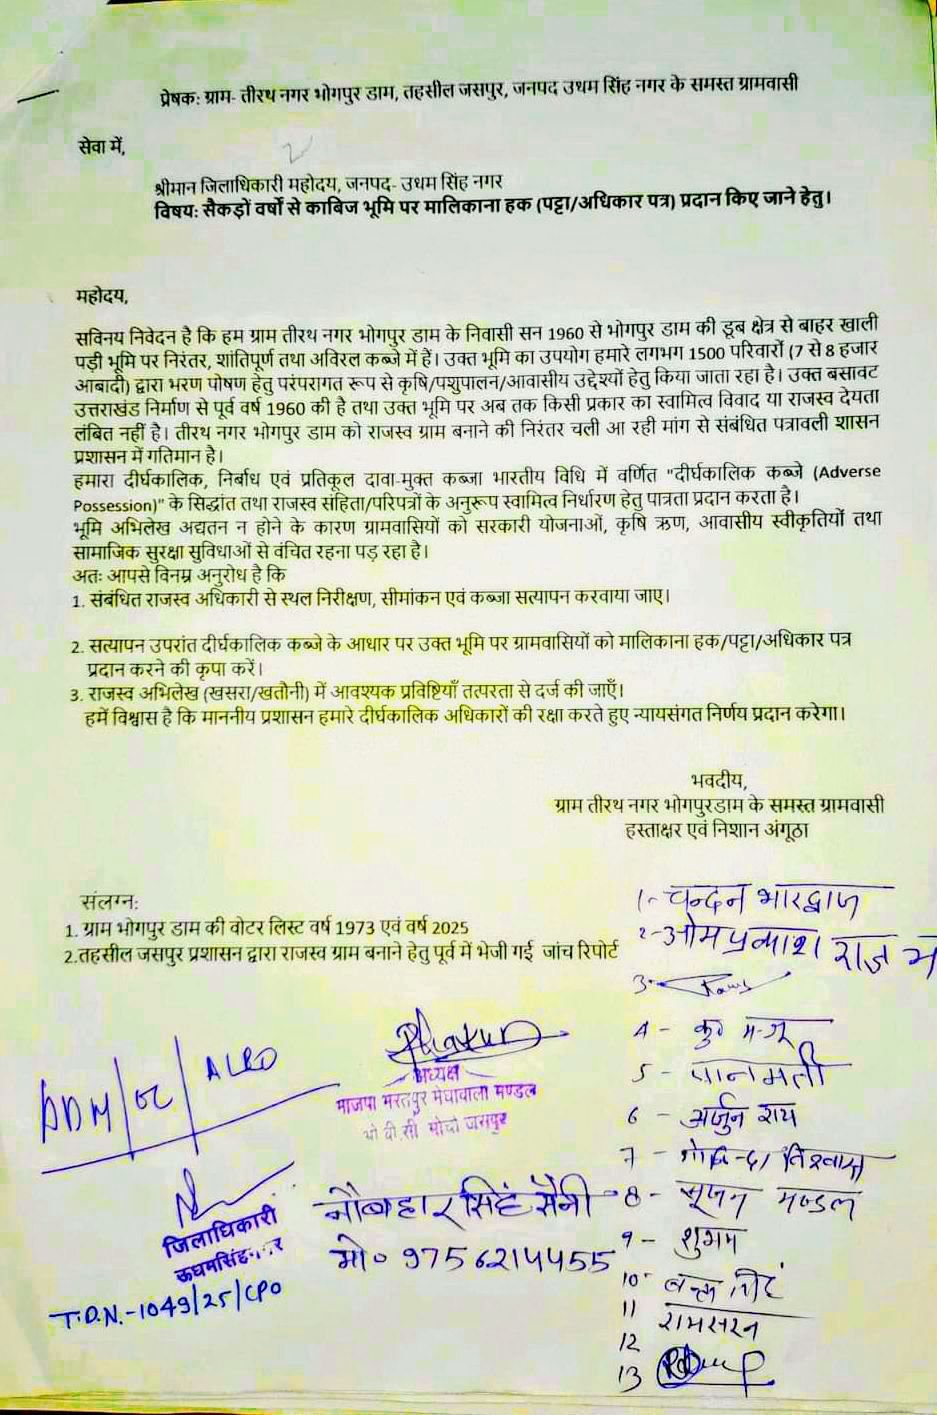 प्रेषक: ग्राम- तीरथ नगर भोगपुर डाम, तहसील जसपुर, जनपद उधम सिंह नगर के समस्त ग्रामवासी
सेवा में,
श्रीमान जिलाधिकारी महोदय, जनपद- उधम सिंह नगर
विषय: सैकड़ों वर्षों से काबिज भूमि पर मालिकाना हक (पट्टा/अधिकार पत्र) प्रदान किए जाने हेतु।
महोदय,
सविनय निवेदन है कि हम ग्राम तीरथ नगर भोगपुर डाम के निवासी सन 1960 से भोगपुर डाम की डूब क्षेत्र से बाहर खाली
पड़ी भूमि पर निरंतर, शांतिपूर्ण तथा अविरल कब्जे में हैं। उक्त भूमि का उपयोग हमारे लगभग 1500 परिवारों (7 से 8 हजार
आबादी) द्वारा भरण पोषण हेतु परंपरागत रूप से कृषि/पशुपालन/आवासीय उद्देश्यों हेतु किया जाता रहा है। उक्त बसावट
उत्तराखंड निर्माण से पूर्व वर्ष 1960 की है तथा उक्त भूमि पर अब तक किसी प्रकार का स्वामित्व विवाद या राजस्व देयता
लंबित नहीं है। तीरथ नगर भोगपुर डाम को राजस्व ग्राम बनाने की निरंतर चली आ रही मांग से संबंधित पत्रावली शासन
प्रशासन में गतिमान है।
हमारा दीर्घकालिक, निर्बाध एवं प्रतिकूल दावा-मुक्त कब्जा भारतीय विधि में वर्णित "दीर्घकालिक कब्जे (Adverse
Possession)" के सिद्धांत तथा राजस्व संहिता/परिपत्रों के अनुरूप स्वामित्व निर्धारण हेतु पात्रता प्रदान करता है।
भूमि अभिलेख अद्यतन न होने के कारण ग्रामवासियों को सरकारी योजनाओं, कृषि ऋण, आवासीय स्वीकृतियों तथा
सामाजिक सुरक्षा सुविधाओं से वंचित रहना पड़ रहा है।
अतः आपसे विनम्र अनुरोध है कि
1. संबंधित राजस्व अधिकारी से स्थल निरीक्षण, सीमांकन एवं कब्जा सत्यापन करवाया जाए।
2. सत्यापन उपरांत दीर्घकालिक कब्जे के आधार पर उक्त भूमि पर ग्रामवासियों को मालिकाना हक/पट्टा/अधिकार पत्र
प्रदान करने की कृपा करें।
3. राजस्व अभिलेख (खसरा/खतौनी) में आवश्यक प्रविष्टियाँ तत्परता से दर्ज की जाएँ।
हमें विश्वास है कि माननीय प्रशासन हमारे दीर्घकालिक अधिकारों की रक्षा करते हुए न्यायसंगत निर्णय प्रदान करेगा।
भवदीय,
ग्राम तीरथ नगर भोगपुरडाम के समस्त ग्रामवासी
हस्ताक्षर एवं निशान अंगूठा
संलग्न:
1. ग्राम भोगपुर डाम की वोटर लिस्ट वर्ष 1973 एवं वर्ष 2025
2.तहसील जसपुर प्रशासन द्वारा राजस्व ग्राम बनाने हेतु पूर्व में भेजी गई जांच रिपोर्ट
1- चन्दन भारद्वाज
2- ओमप्रकाश राज
3-
4- कु
5- पानमती
6- अर्जुन राय
7-
8- मण्डल
9- शुभम
10-
11 रामसरन
12
13
अध्यक्ष
भाजपा भरतपुर मेघावाला मण्डल
ओ बी.सी मोर्चा जसपुर
जिलाधिकारी
ऊधमसिंह
T.D.N.-1049/25/CPO
नौबहार सिंह सैनी
मो० 9756214455